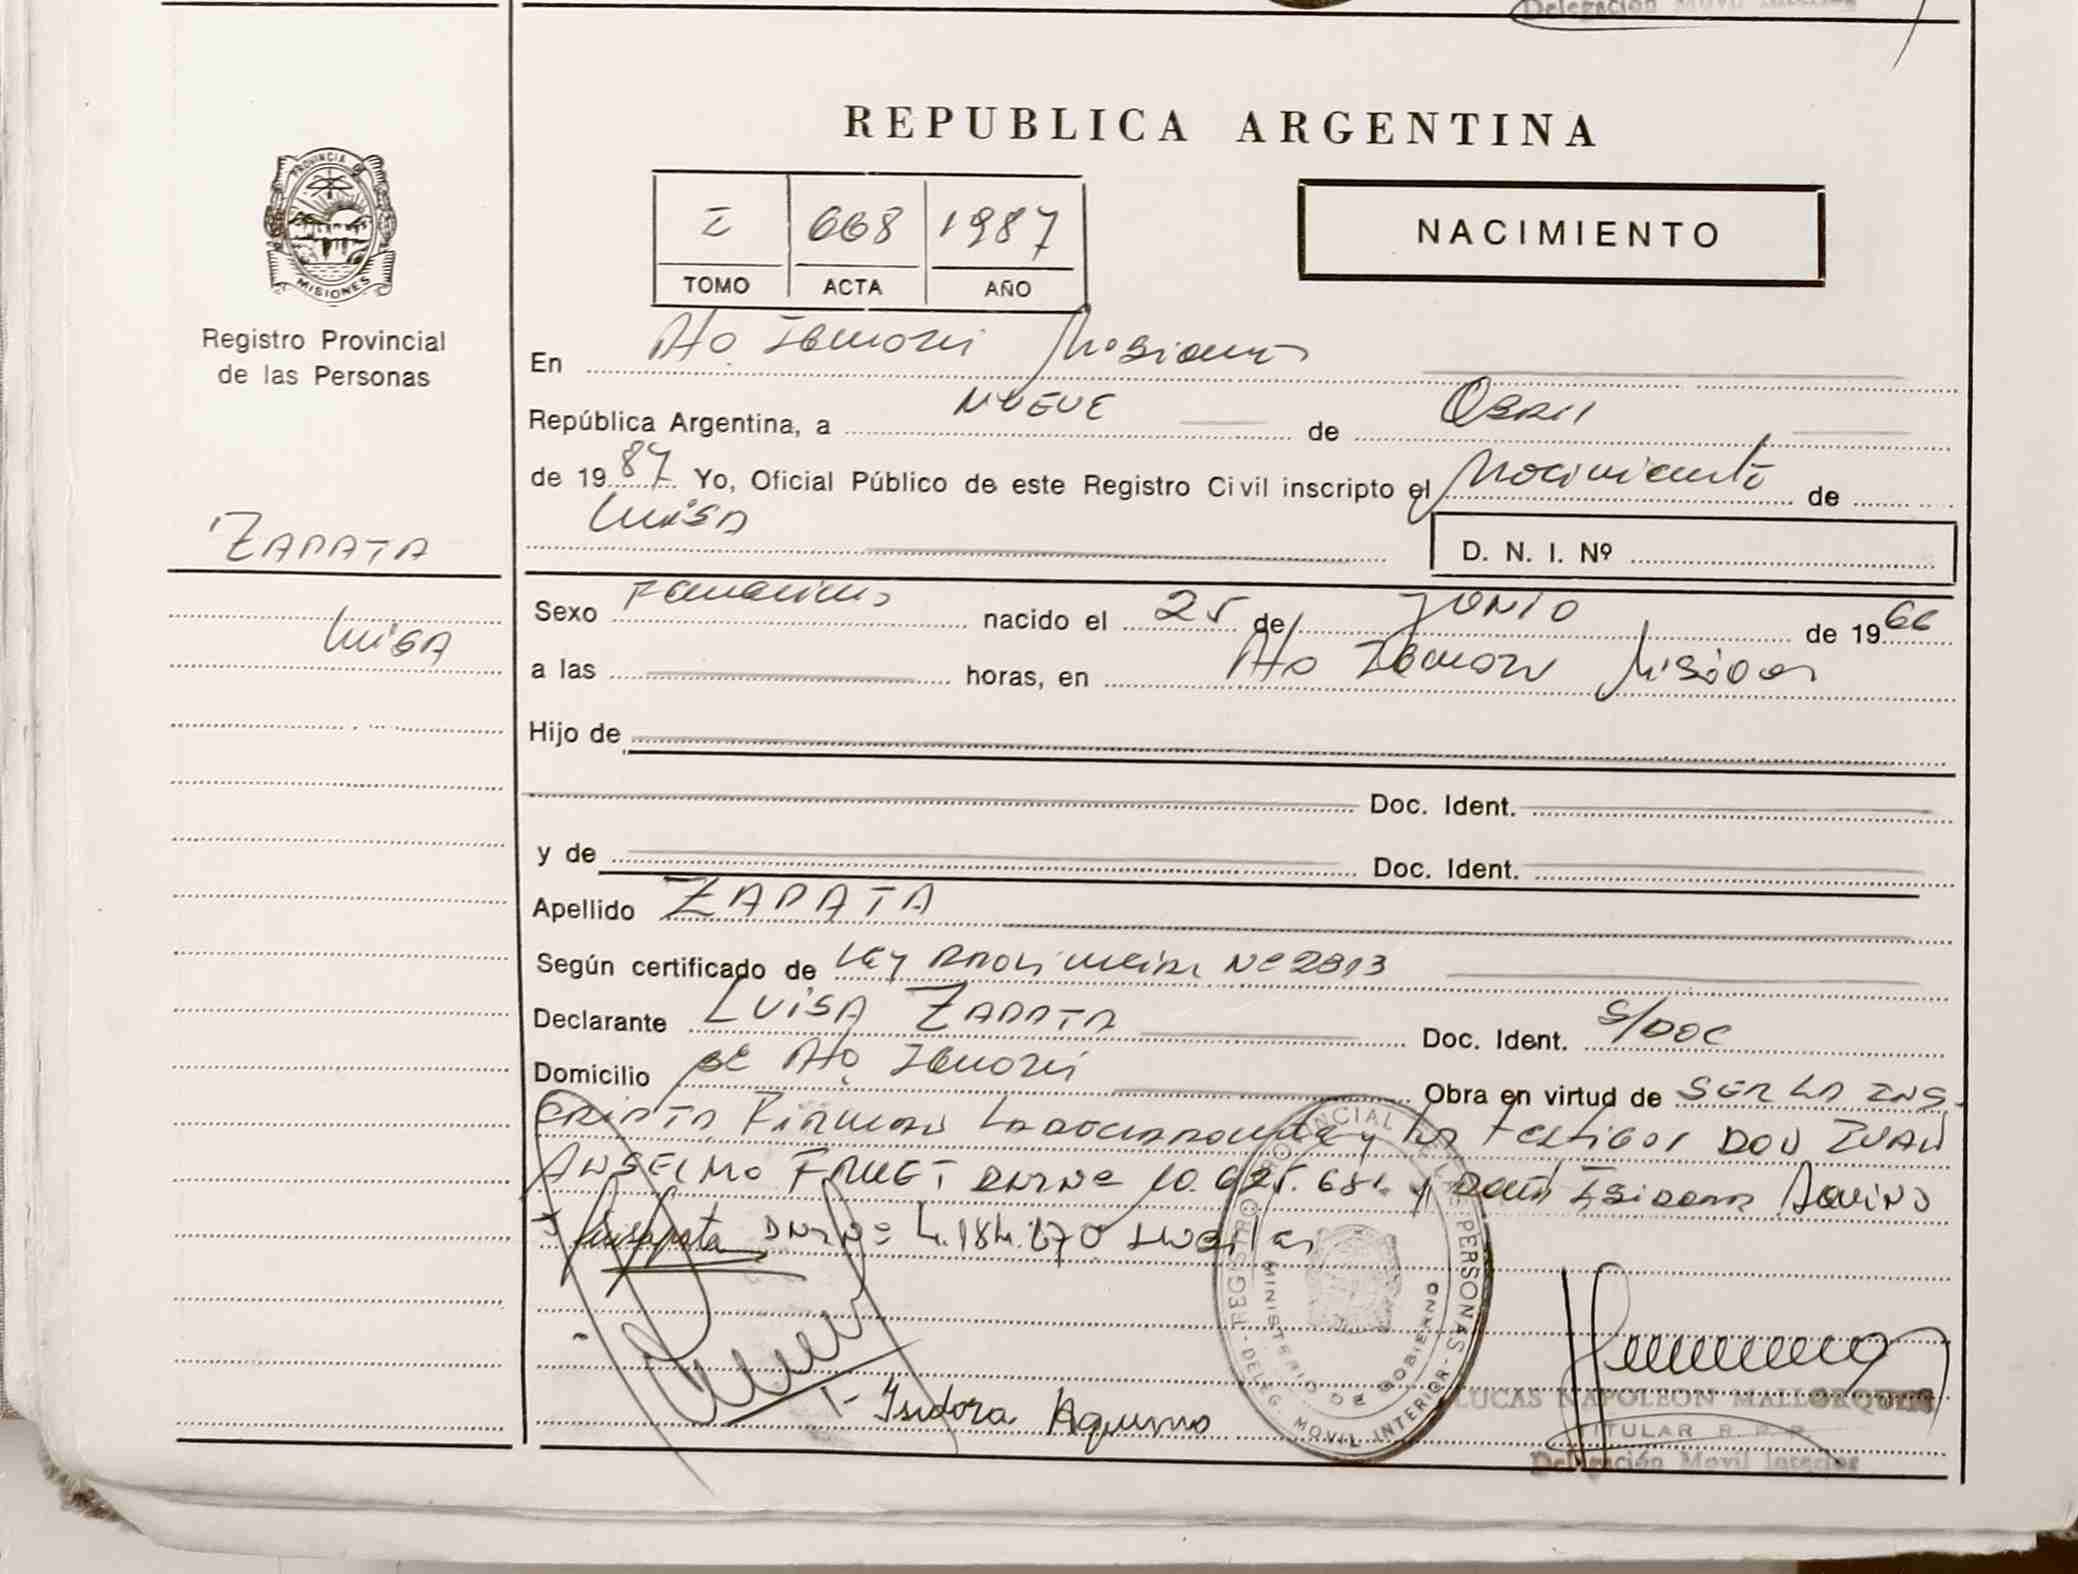 Delegación Movil Interior
PROVINCIA DE
MISIONES
Registro Provincial
de las Personas
ZAPATA
Luisa
REPUBLICA ARGENTINA
I 668 1987
TOMO ACTA AÑO
NACIMIENTO
En Pto Misiones
República Argentina, a NUEVE de Abril
de 1987 Yo, Oficial Público de este Registro Civil inscripto el Nacimiento de
Luisa
D. N. I. Nº
Sexo Femenino nacido el 25 de JUNIO de 1966
a las horas, en Pto Misiones
Hijo de
Doc. Ident.
y de Doc. Ident.
Apellido ZAPATA
Según certificado de Ley Provincial Nº 2813
Declarante LUISA ZAPATA Doc. Ident. S/DOC
Domicilio Pto Obra en virtud de SER LA INS-
CRIPTA Firman La declarante y los Testigos DON JUAN
ANSELMO DNI Nº 10.625.681 y Doña Isidora Aquino
DNI Nº 4.184.270
REGISTRO PROVINCIAL DE LAS PERSONAS - DELEG. MOVIL INTERIOR -
MINISTERIO DE GOBIERNO
Isidora Aquino
LUCAS NAPOLEON MALLORQUIN
TITULAR R. P. P.
Delegación Movil Interior